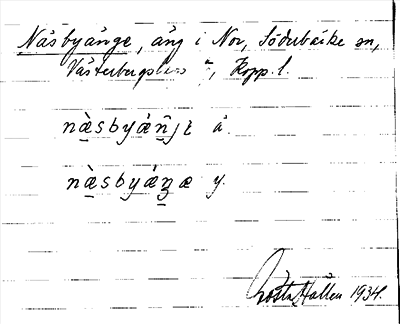 Näsbyänge, äng i Nor, Söderbärke sn,
Västerbergslags , Kopp. l.
næ̀sbyáṇ̃jɛ ä.
næ̀sbyáʒæ y.
Gösta Hallén 1934.